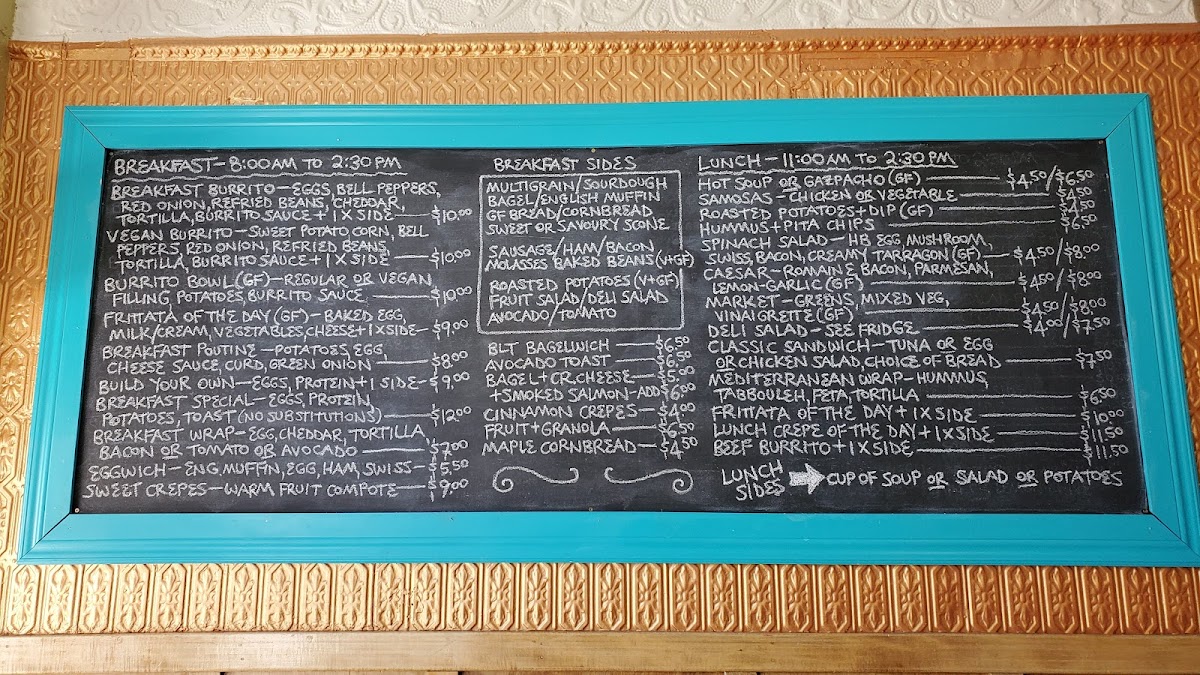 BREAKFAST - 8:00AM TO 2:30PM
BREAKFAST BURRITO - EGGS, BELL PEPPERS,
RED ONION, REFRIED BEANS, CHEDDAR,
TORTILLA, BURRITO SAUCE + 1 X SIDE - $10.00
VEGAN BURRITO - SWEET POTATO, CORN, BELL
PEPPERS, RED ONION, REFRIED BEANS,
TORTILLA, BURRITO SAUCE + 1 X SIDE - $10.00
BURRITO BOWL (GF) - REGULAR OR VEGAN
FILLING, POTATOES, BURRITO SAUCE - $10.00
FRITTATA OF THE DAY (GF) - BAKED EGG,
MILK/CREAM, VEGETABLES, CHEESE + 1 X SIDE - $9.00
BREAKFAST POUTINE - POTATOES, EGG,
CHEESE SAUCE, CURD, GREEN ONION - $8.00
BUILD YOUR OWN - EGGS, PROTEIN + 1 SIDE - $9.00
BREAKFAST SPECIAL - EGGS, PROTEIN,
POTATOES, TOAST (NO SUBSTITUTIONS) - $12.00
BREAKFAST WRAP - EGG, CHEDDAR, TORTILLA,
BACON OR TOMATO OR AVOCADO - $7.00
EGGWICH - ENG. MUFFIN, EGG, HAM, SWISS - $5.50
SWEET CREPES - WARM FRUIT COMPOTE - $9.00
BREAKFAST SIDES
MULTIGRAIN/SOURDOUGH
BAGEL/ENGLISH MUFFIN
GF BREAD/CORNBREAD
SWEET OR SAVOURY SCONE
SAUSAGE/HAM/BACON
MOLASSES BAKED BEANS (V+GF)
ROASTED POTATOES (V+GF)
FRUIT SALAD/DELI SALAD
AVOCADO/TOMATO
BLT BAGELWICH - $6.50
AVOCADO TOAST - $6.50
BAGEL + CR. CHEESE - $5.00
+ SMOKED SALMON - ADD $6.00
CINNAMON CREPES - $4.00
FRUIT + GRANOLA - $6.50
MAPLE CORNBREAD - $4.50
LUNCH - 11:00AM TO 2:30PM
HOT SOUP OR GAZPACHO (GF) - $4.50/$6.50
SAMOSAS - CHICKEN OR VEGETABLE - $4.50
ROASTED POTATOES + DIP (GF) - $4.50
HUMMUS + PITA CHIPS - $6.50
SPINACH SALAD - HB EGG, MUSHROOM,
SWISS, BACON, CREAMY TARRAGON (GF) - $4.50/$8.00
CAESAR - ROMAINE, BACON, PARMESAN,
LEMON-GARLIC (GF) - $4.50/$8.00
MARKET - GREENS, MIXED VEG,
VINAIGRETTE (GF) - $4.50/$8.00
DELI SALAD - SEE FRIDGE - $4.00/$7.50
CLASSIC SANDWICH - TUNA OR EGG
OR CHICKEN SALAD, CHOICE OF BREAD - $7.50
MEDITERRANEAN WRAP - HUMMUS,
TABBOULEH, FETA, TORTILLA - $6.50
FRITTATA OF THE DAY + 1 X SIDE - $10.00
LUNCH CREPE OF THE DAY + 1 X SIDE - $11.50
BEEF BURRITO + 1 X SIDE - $11.50
LUNCH SIDES → CUP OF SOUP OR SALAD OR POTATOES